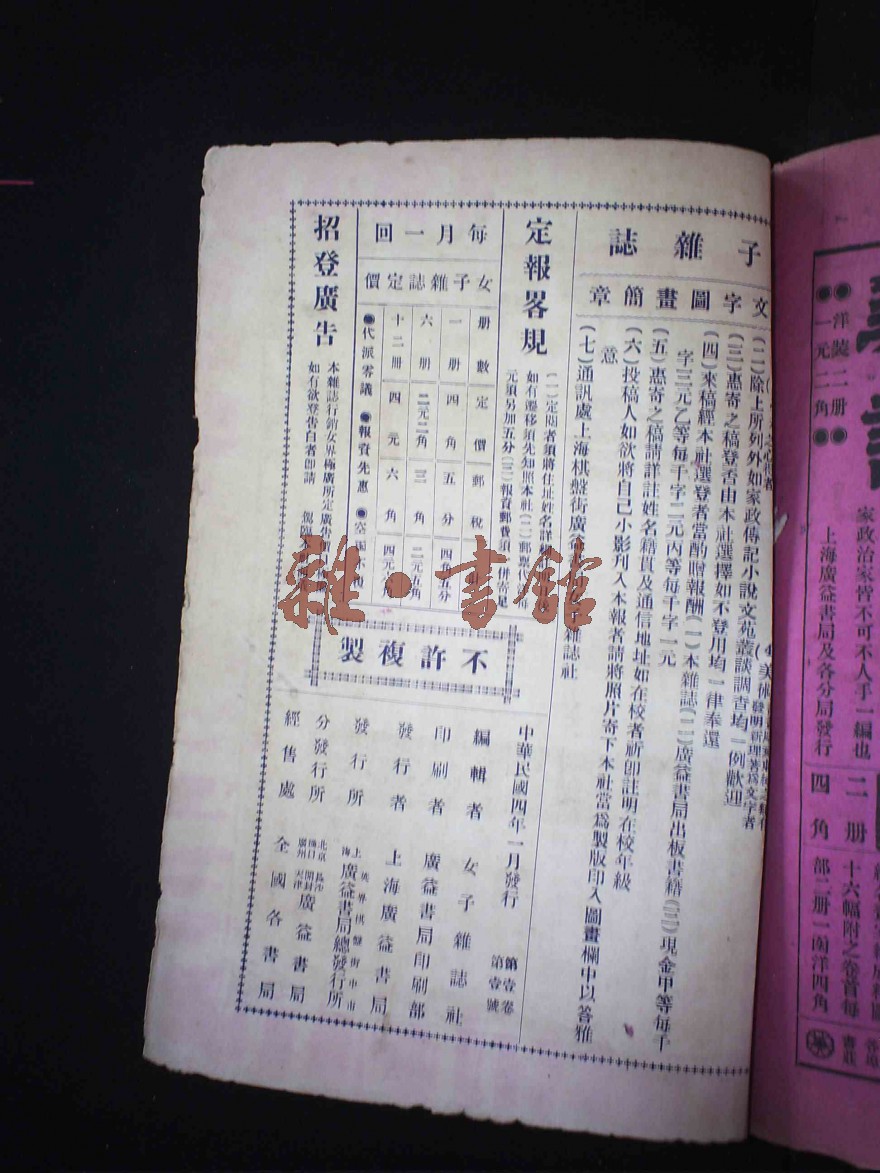 子雜誌
文字圖畫簡章
發明新理著爲文字者
(二)除上所列外如家政傳記小說文苑叢談調查均一例歡迎
(三)惠寄之稿登否由本社選擇如不登用均一律奉還
(四)來稿經本社選登者當酌贈報酬(一)本雜誌(二)廣益書局出板書籍(三)現金甲等每千
字三元乙等每千字二元丙等每千字一元
(五)惠寄之稿請詳註姓名籍貫及通信地址如在校者祈即註明在校年級
(六)投稿人如欲將自己小影刋入本報者請將照片寄下本社當爲製版印入圖畫欄中以答雅
意
(七)通訊處上海棋盤街廣益
雜誌社
定報畧規
(一)定閱者須將住址姓名詳
如有遷移須先知照本社(二)郵票
元須另加五分(三)報資郵費須
每月一回
女子雜誌定價
册數 定價 郵稅
一册 四角 五分 四角 分
六册 二元二角 三角 二元五角
十二冊 四元 六角 四元 角
●代派零議 ●報資先惠 ●空函不復
招登廣告
本雜誌行銷女界極廣所定廣告價目
如有欲登告白者即請 駕臨
不許複製
中華民國四年一月發行 第壹卷 第壹號
編輯者 女子雜誌社
印刷者 廣益書局印刷部
發行者 上海廣益書局
發行所 上海英界棋盤街中市 廣益書局總發行所
分發行所 北京 長沙 漢口 開封 廣州 天津 廣益書局
經售處 全國各書局
雜·書館
●洋裝二册●
●一元二角●
家政治家皆不可不人手一編也
上海廣益書局及各分局發行
二册
四角
十六幅附之卷首每
部二册一函洋四角
各埠
書莊